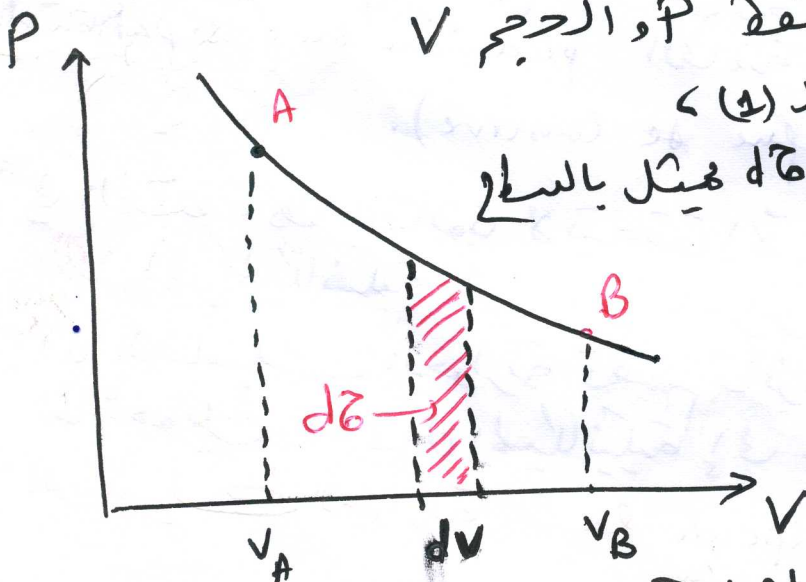 P
والحجم V
(1) ،
dτ ممثل بالسطح
A
B
dτ
V
V_A
dv
V_B